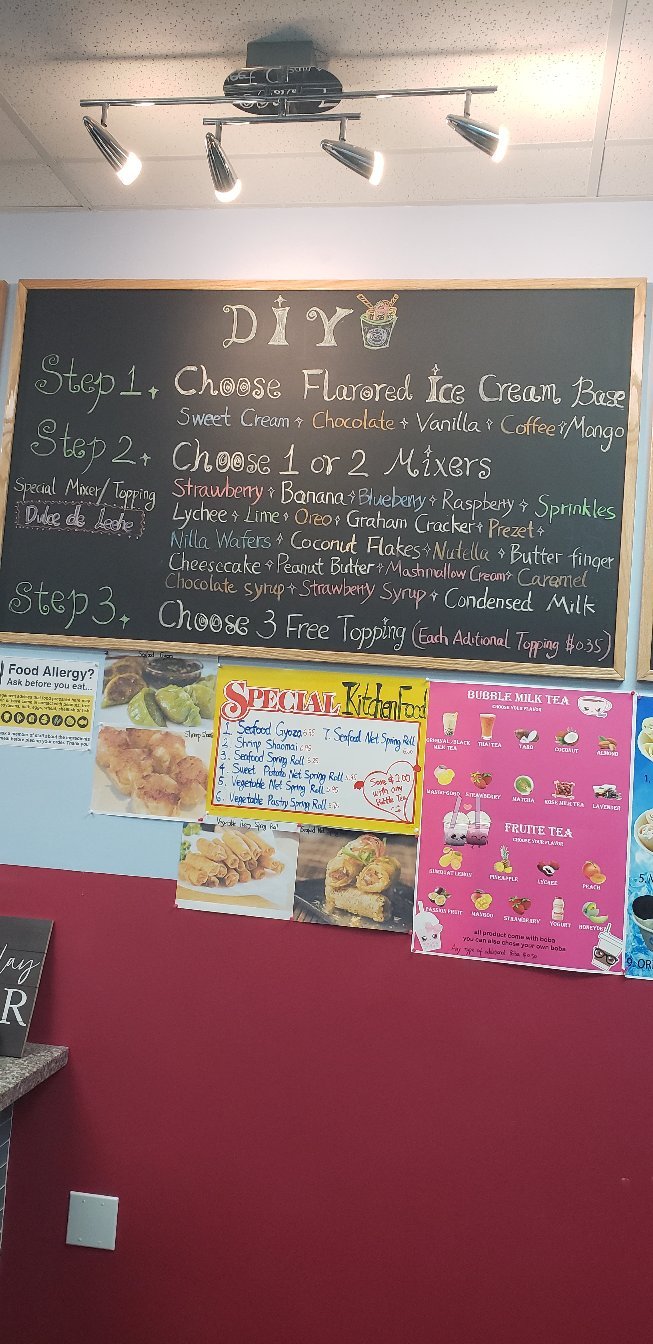 DIY
Step 1. Choose Flarored Ice Cream Base
Sweet Cream Chocolate Vanilla Coffee/Mango
Step 2. Choose 1 or 2 Mixers
Special Mixer/Topping
Dulce de Leche
Strawberry Banana Blueberry Raspberry Sprinkles
Lychee Lime Oreo Graham Cracker Prezet
Nilla Wafers Coconut Flakes Nutella Butter finger
Cheesecake Peanut Butter Mashmallow Cream Caramel
Chocolate syrup Strawberry Syrup Condensed Milk
Step 3. Choose 3 Free Topping (Each Aditional Topping $0.35)
Food Allergy?
Ask before you eat...
SPECIAL Kitchen Food
1. Seafood Gyoza
2. Shrimp Shaomai
3. Seafood Spring Roll
4. Sweet Potato Net Spring Roll
5. Vegetable Net Spring Roll
6. Vegetable Pastry Spring Roll
7. Seafood Net Spring Roll
Save $2.00
with any
Bubble Tea
Vegetable Pastry Spring Roll
BUBBLE MILK TEA
CHOOSE YOUR FLAVOR
ORIGINAL/BLACK MILK TEA
THAI TEA
TARO
COCONUT
ALMOND
MANGO
STRAWBERRY
MATCHA
ROSE MILK TEA
LAVENDER
FRUITE TEA
CHOOSE YOUR FLAVOR
KUMQUAT LEMON
PINEAPPLE
LYCHEE
PEACH
PASSION FRUIT
MANGOO
STRAWBERRY
YOGURT
HONEYDEW
all product come with boba
you can also chose your own boba
lay
R